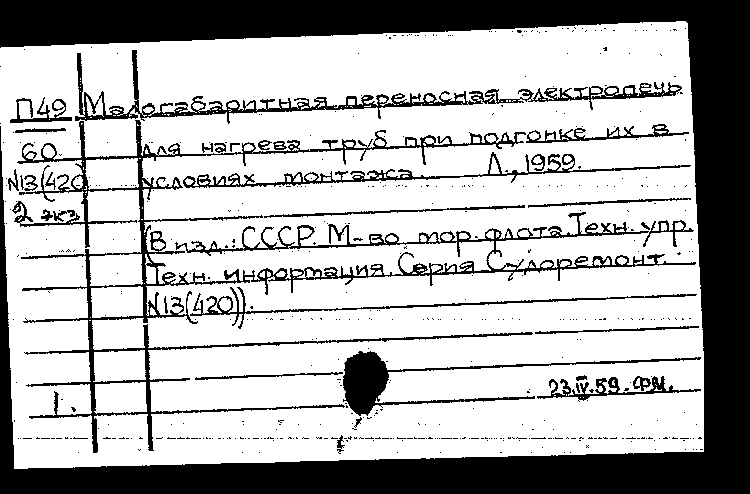 П49 Малогабаритная переносная электропечь
60 для нагрева труб при подгонке их в
N13(420) условиях монтажа. Л., 1959.
2 экз
(В изд.: СССР. М-во мор. флота. Техн. упр.
Техн. информация. Серия Судоремонт.
N13(420)).
1. 23.IV.59. ФМ.